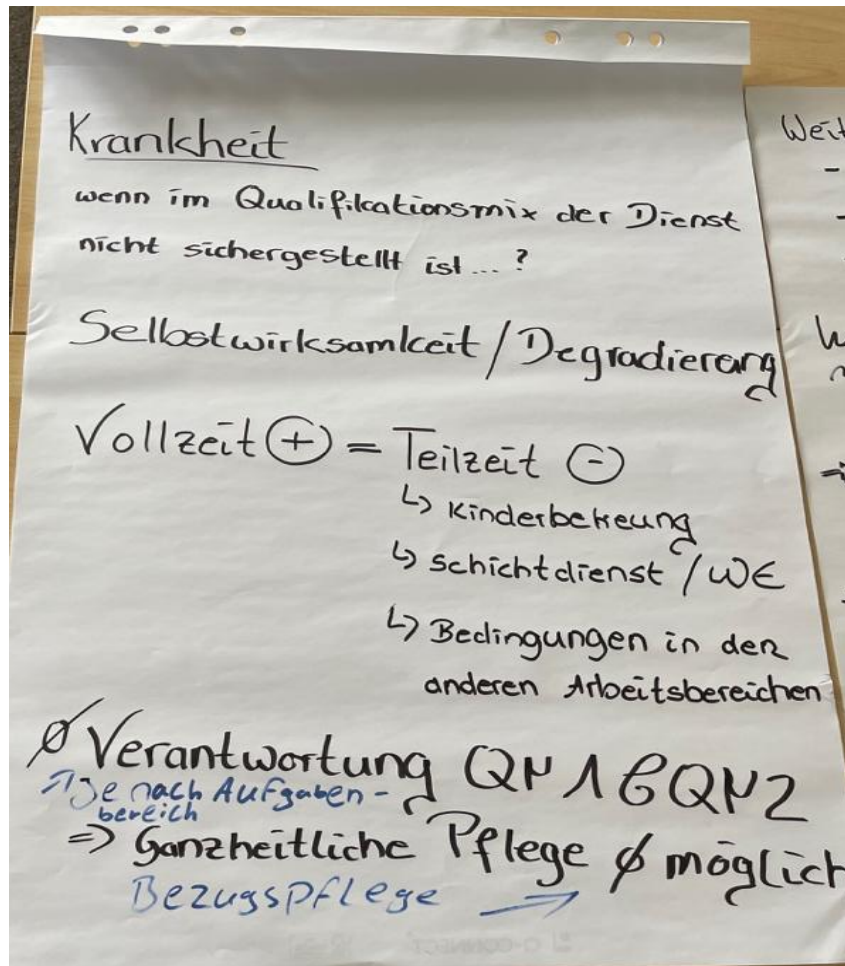 Krankheit
wenn im Qualifikationsmix der Dienst
nicht sichergestellt ist...?
Selbstwirksamkeit / Degradierung
Vollzeit ⊕ = Teilzeit ⊖
↳ Kinderbetreuung
↳ Schichtdienst / WE
↳ Bedingungen in den
anderen Arbeitsbereichen
Ø Verantwortung QN1 & QN2
↗ Je nach Aufgaben-
bereich
=> Ganzheitliche Pflege Ø möglich
Bezugspflege →
Weit